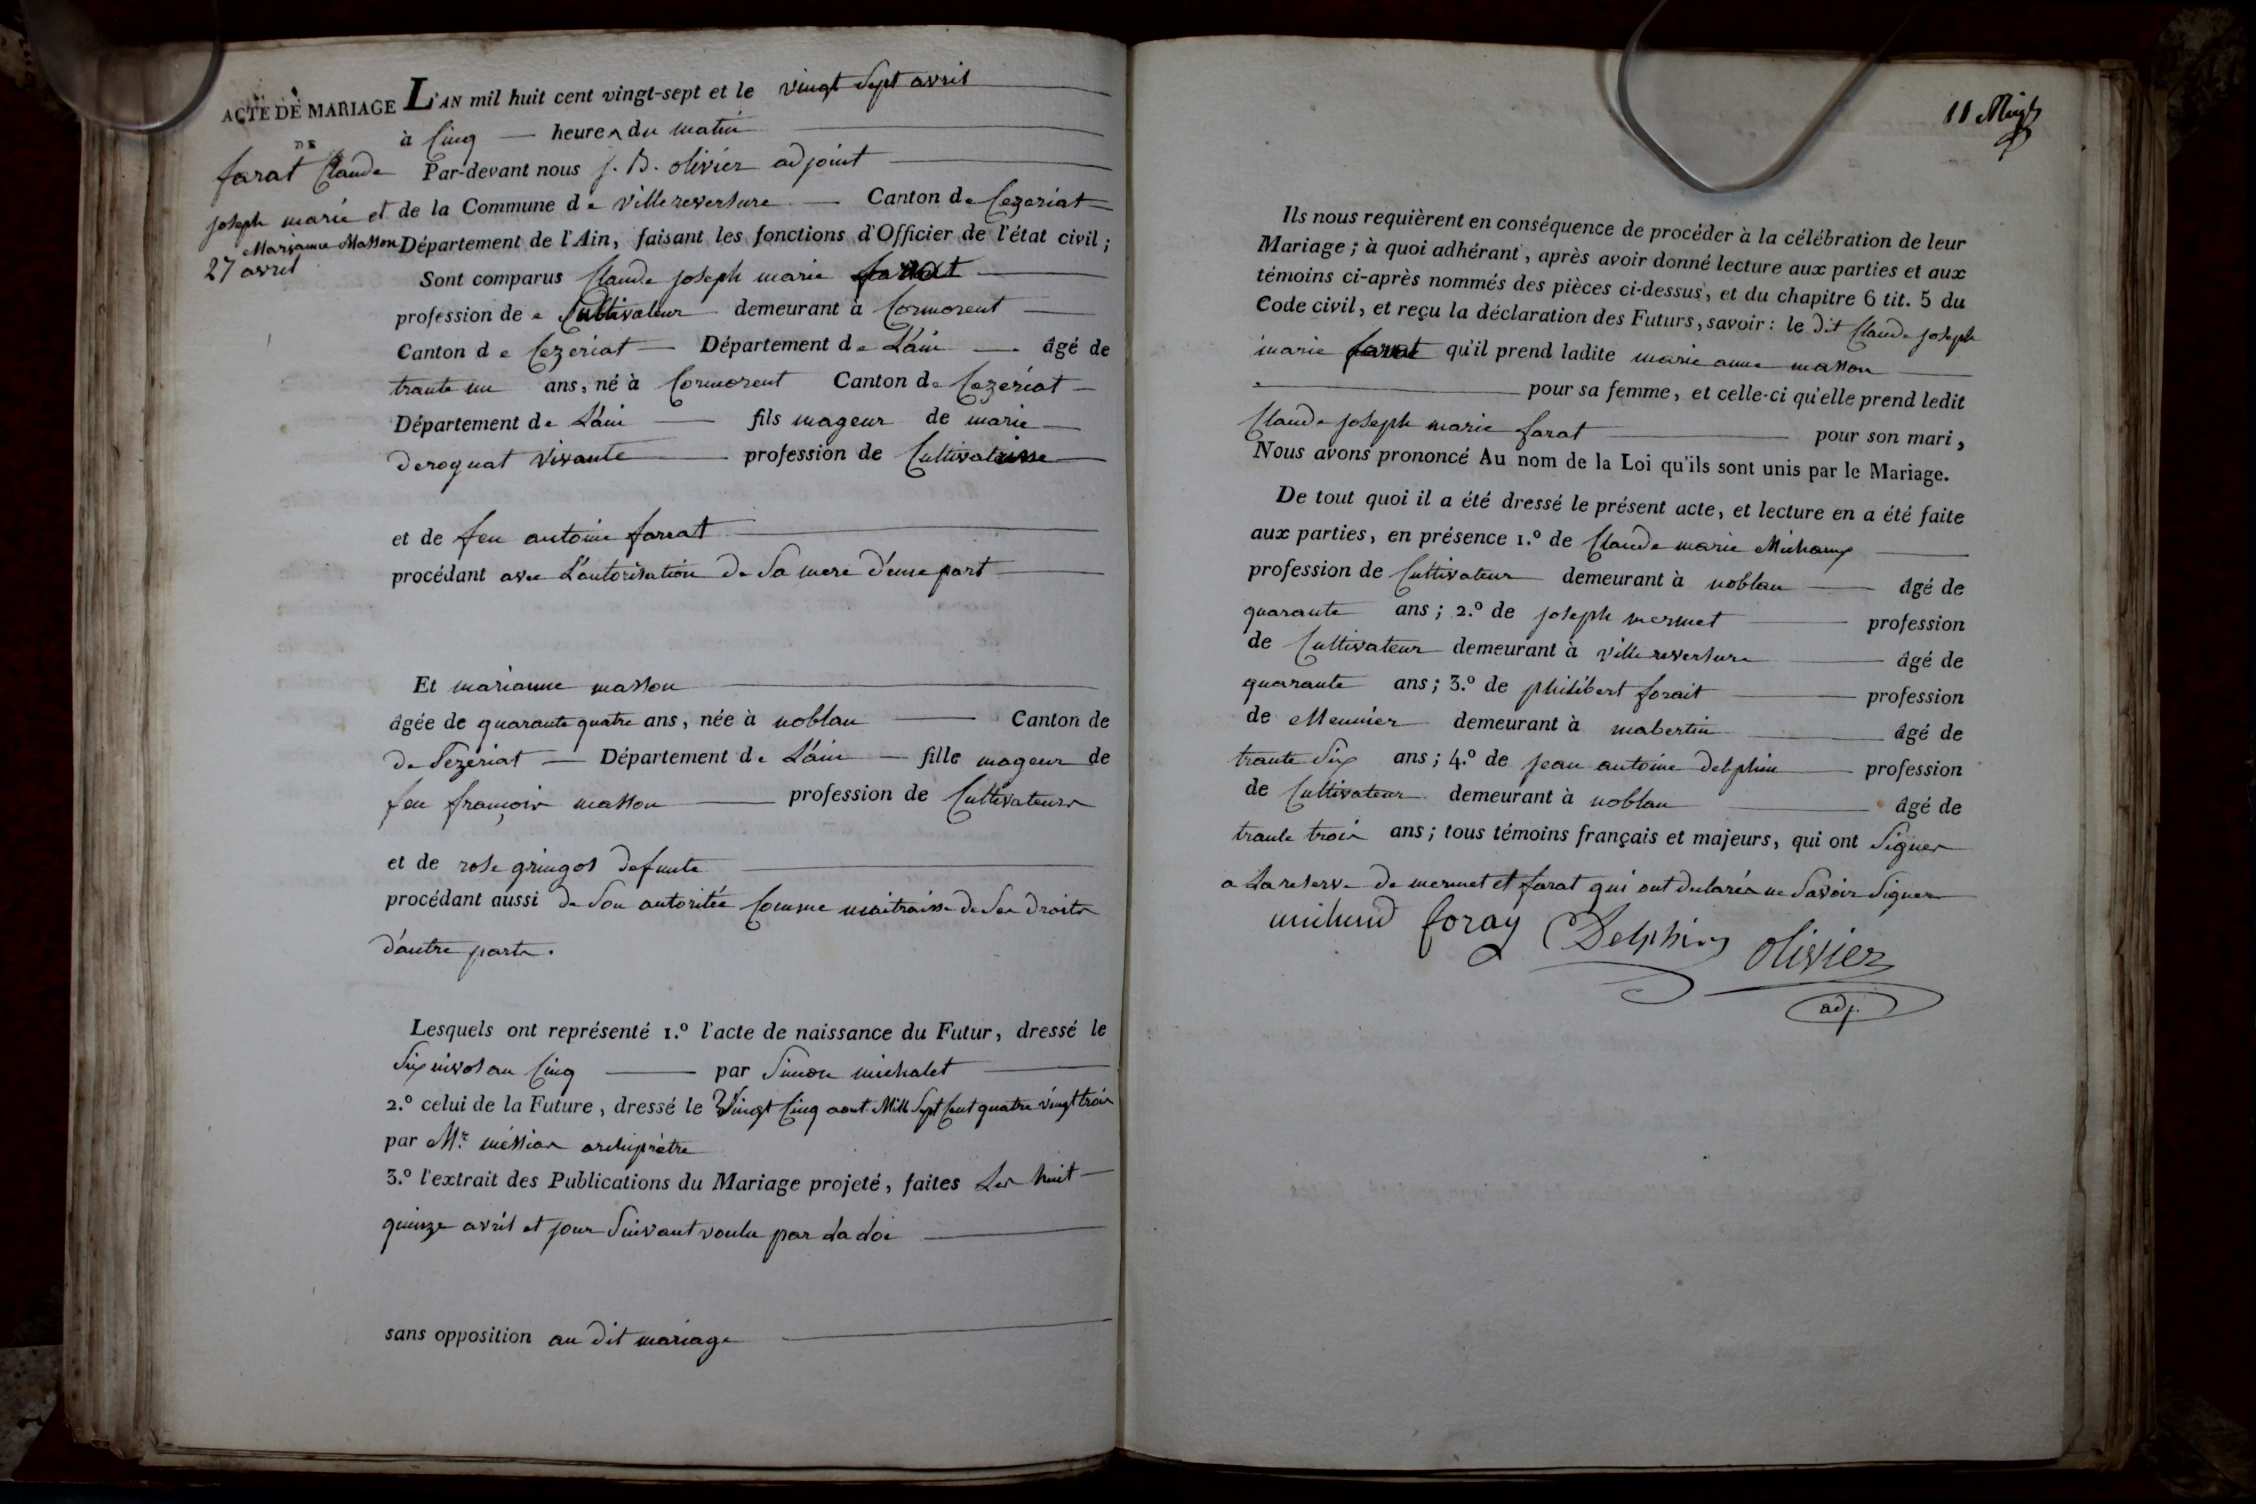 ACTE DE MARIAGE
DE
farat Claude
joseph marie et
Marianne Masson
27 avril
L'AN mil huit cent vingt-sept et le vingt sept avril
à Cinq heures du matin
Par-devant nous j. B. olivier adjoint
de la Commune de villereversure Canton de Cezeriat
Département de l'Ain, faisant les fonctions d'Officier de l'état civil;
Sont comparus Claude joseph marie farat
profession de Cultivateur demeurant à Cormorent
Canton de Cezeriat Département de L'ain âgé de
trante un ans, né à Cormorent Canton de Cezeriat
Département de L'ain fils mageur de marie
deroguat vivante profession de Cultivatrisse
et de feu antoine farrat
procédant avec L'autorisation de Sa mere d'eune part
Et marianne masson
âgée de quarante quatre ans, née à noblan Canton de
de Sezeriat Département de L'ain fille mageur de
feu françois masson profession de Cultivateurs
et de rose gringos defunte
procédant aussi de Son autoritée Comme maitraisse de Ses droits
d'autre parts.
Lesquels ont représenté 1.º l'acte de naissance du Futur, dressé le
Six nivos an Cinq par Simon michalet
2.º celui de la Future, dressé le Vingt Cinq aout Mill Sept Cent quatre vingt trois
par Mr. méssias archiprètre
3.º l'extrait des Publications du Mariage projeté, faites Les huit
quinze avril et jour Suivant voulu par La Loi
sans opposition au dit mariage
11
Ils nous requièrent en conséquence de procéder à la célébration de leur
Mariage; à quoi adhérant, après avoir donné lecture aux parties et aux
témoins ci-après nommés des pièces ci-dessus, et du chapitre 6 tit. 5 du
Code civil, et reçu la déclaration des Futurs, savoir: le dit Claude joseph
marie farat qu'il prend ladite marie anne masson
pour sa femme, et celle-ci qu'elle prend ledit
Claude joseph marie farat pour son mari,
Nous avons prononcé Au nom de la Loi qu'ils sont unis par le Mariage.
De tout quoi il a été dressé le présent acte, et lecture en a été faite
aux parties, en présence 1.º de Claude marie Michaux
profession de Cultivateur demeurant à noblan âgé de
quarante ans; 2.º de joseph mermet profession
de Cultivateur demeurant à villereversure âgé de
quarante ans; 3.º de philibert forait profession
de Meunier demeurant à mabertin âgé de
trante Six ans; 4.º de jean antoine delphin profession
de Cultivateur demeurant à noblan âgé de
trante trois ans; tous témoins français et majeurs, qui ont Signer
a La reserve de mermet et farat qui ont declarés ne Savoir Signer
foray Delphin olivier
adj.